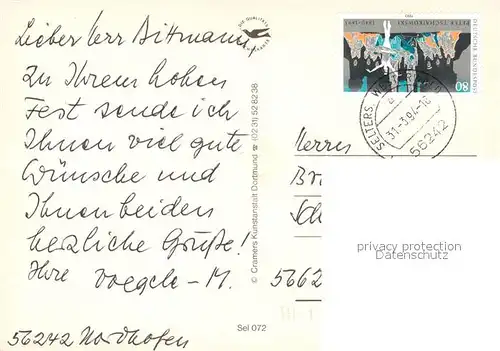 Lieber Herr Bittmann,
Zu Ihrem hohen
Fest sende ich
Ihnen viel gute
Wünsche und
Ihnen beiden
herzliche Grüße!
Ihre Voegele-M.
56242 Nordhofen
DIE QUALITÄTS KARTE
© Cramers Kunstanstalt Dortmund ☎ (02 31) 52 82 38
Sel 072
PETER TSCHAIKOWSKI
1840-1893
DEUTSCHE BUNDESPOST
80
SELTERS
31.-3.94.-16
56242
Herrn
Br
Sch
5662
privacy protection
Datenschutz